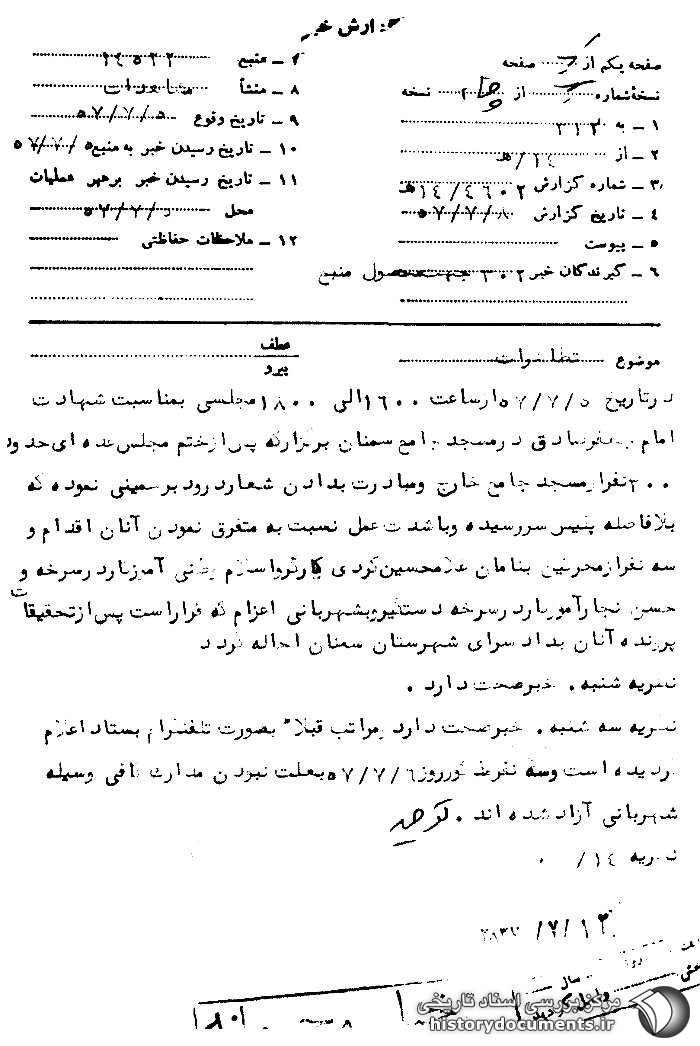 گزارش خبر
صفحه یکم از صفحه
نسخهٔ شماره از نسخه
۱ – به ۳۱۲
۲ – از ۱۴/ه
۳ – شماره گزارش ۱۴/۴۶۰۲ه
۴ – تاریخ گزارش ۵۷/۷/۸
۵ – پیوست
۶ – گیرندگان خبر ۳۰۲ جهت محصول منبع
۷ – منبع ۱۴۵۳۲
۸ – منشأ مشاهدات
۹ – تاریخ وقوع ۵۷/۷/۵
۱۰ – تاریخ رسیدن خبر به منبع ۵۷/۷/۵
۱۱ – تاریخ رسیدن خبر برهبر عملیات
محل ۵۷/۷/۵
۱۲ – ملاحظات حفاظتی
موضوع تظاهرات
عطف
پیرو
در تاریخ ۵۷/۷/۵ از ساعت ۱۶۰۰ الی ۱۸۰۰ مجلسی بمناسبت شهادت
امام جعفر صادق در مسجد جامع سمنان برگزار که پس از ختم مجلس عده ای حدود
۲۰۰ نفر از مسجد جامع خارج و مبادرت بدادن شعار درود بر سمینی نموده که
بلافاصله پلیس سر رسیده و باشدت عمل نسبت به متفرق نمودن آنان اقدام و
سه نفر از محرکین بنامان غلامحسین کردی کارگر و اسلام آموزگار در سرخه و
حسن نجار آموزگار در سرخه دستگیر و بشهربانی اعزام که قرار است پس از تحقیقات
پرونده آنان بدادسرای شهرستان سمنان احاله گردد
نظریه شنبه . خبر صحت دارد .
نظریه سه شنبه . خبر صحت دارد و مراتب قبلاً بصورت تلفنگرام بستاد اعلام
گردیده است و سه نفر مذکور روز ۵۷/۷/۶ بعلت نبودن مدارک کافی وسیله
شهربانی آزاد شده اند .
نظریه ۱۴/ه .
۲۸۳۷/۷/۱۲
سال
مرکز بررسی اسناد تاریخی
historydocuments.ir